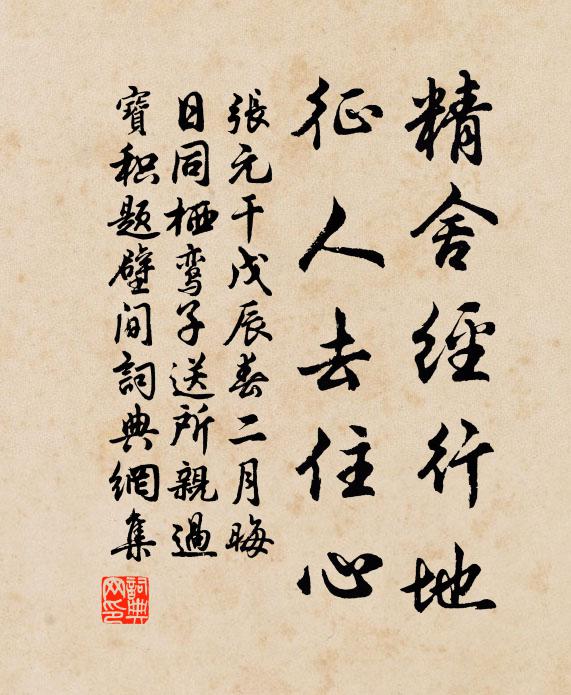 精舍經行地
征人去住心
張元干戊辰春二月晦
日同栖鸾子送所親過
寶积题壁间詞典網集
詞典网印